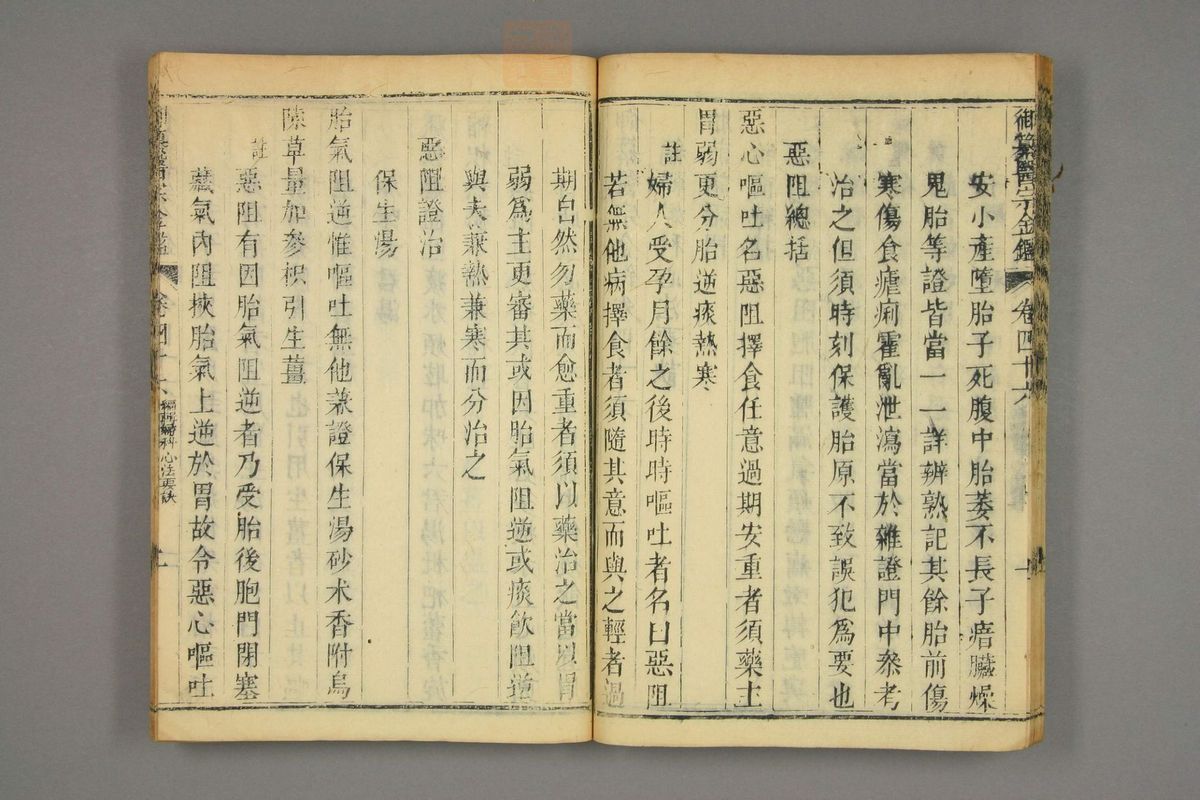 御纂醫宗金鑑 卷四十六
安小產墮胎子死腹中胎萎不長子瘖臟燥
鬼胎等證皆當一一詳辨熟記其餘胎前傷
寒傷食瘧痢霍亂泄瀉當於雜證門中叅考
治之但須時刻保護胎原不致誤犯爲要也
惡阻總括
惡心嘔吐名惡阻擇食任意過期安重者須藥主
胃弱更分胎逆痰熱寒
註
婦人受孕月餘之後時時嘔吐者名曰惡阻
若無他病擇食者須隨其意而與之輕者過
期自然勿藥而愈重者須以藥治之當以胃
弱爲主更審其或因胎氣阻逆或痰飲阻逆
與夫兼熱兼寒而分治之
惡阻證治
保生湯
胎氣阻逆惟嘔吐無他兼證保生湯砂术香附烏
陳草量加參枳引生薑
註
惡阻有因胎氣阻逆者乃受胎後胞門閉塞
藏氣內阻挾胎氣上逆於胃故令惡心嘔吐
卷四十六 編輯婦科心法要訣